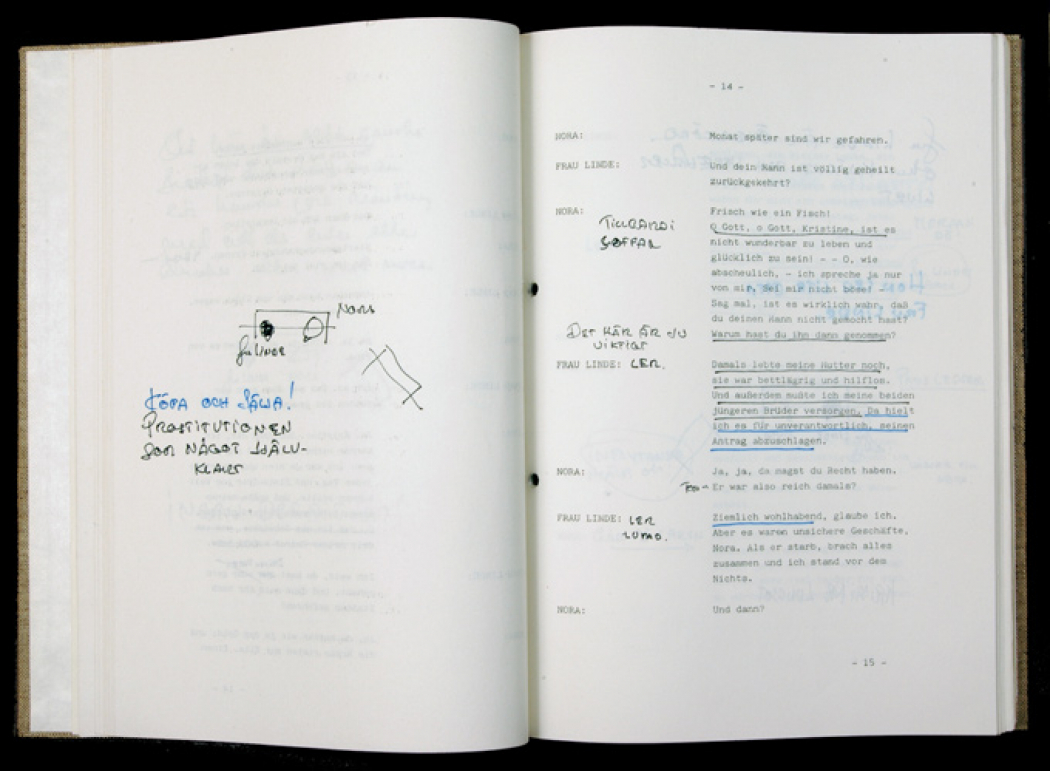 Nora
Fr Linde
KÖPA OCH SÄLJA!
PROSTITUTIONEN
SOM NÅGOT SJÄLV-
KLART
- 14 -
NORA:
Monat später sind wir gefahren.
FRAU LINDE:
Und dein Mann ist völlig geheilt
zurückgekehrt?
NORA:
Frisch wie ein Fisch!
TILLBAKA I
SOFFAN
O Gott, o Gott, Kristine, ist es
nicht wunderbar zu leben und
glücklich zu sein! - - O, wie
abscheulich, - ich spreche ja nur
von mir. Sei mir nicht böse! -
Sag mal, ist es wirklich wahr, daß
du deinen Mann nicht gemocht hast?
Warum hast du ihn dann genommen?
DET HÄR ÄR JU
VIKTIGT
FRAU LINDE: LER.
Damals lebte meine Mutter noch,
sie war bettlägrig und hilflos.
Und außerdem mußte ich meine beiden
jüngeren Brüder versorgen. Da hielt
ich es für unverantwortlich, seinen
Antrag abzuschlagen.
NORA:
Ja, ja, da magst du Recht haben.
Er war also reich damals?
FRAU LINDE: LER
LUGNO.
Ziemlich wohlhabend, glaube ich.
Aber es waren unsichere Geschäfte,
Nora. Als er starb, brach alles
zusammen und ich stand vor dem
Nichts.
NORA:
Und dann?
- 15 -